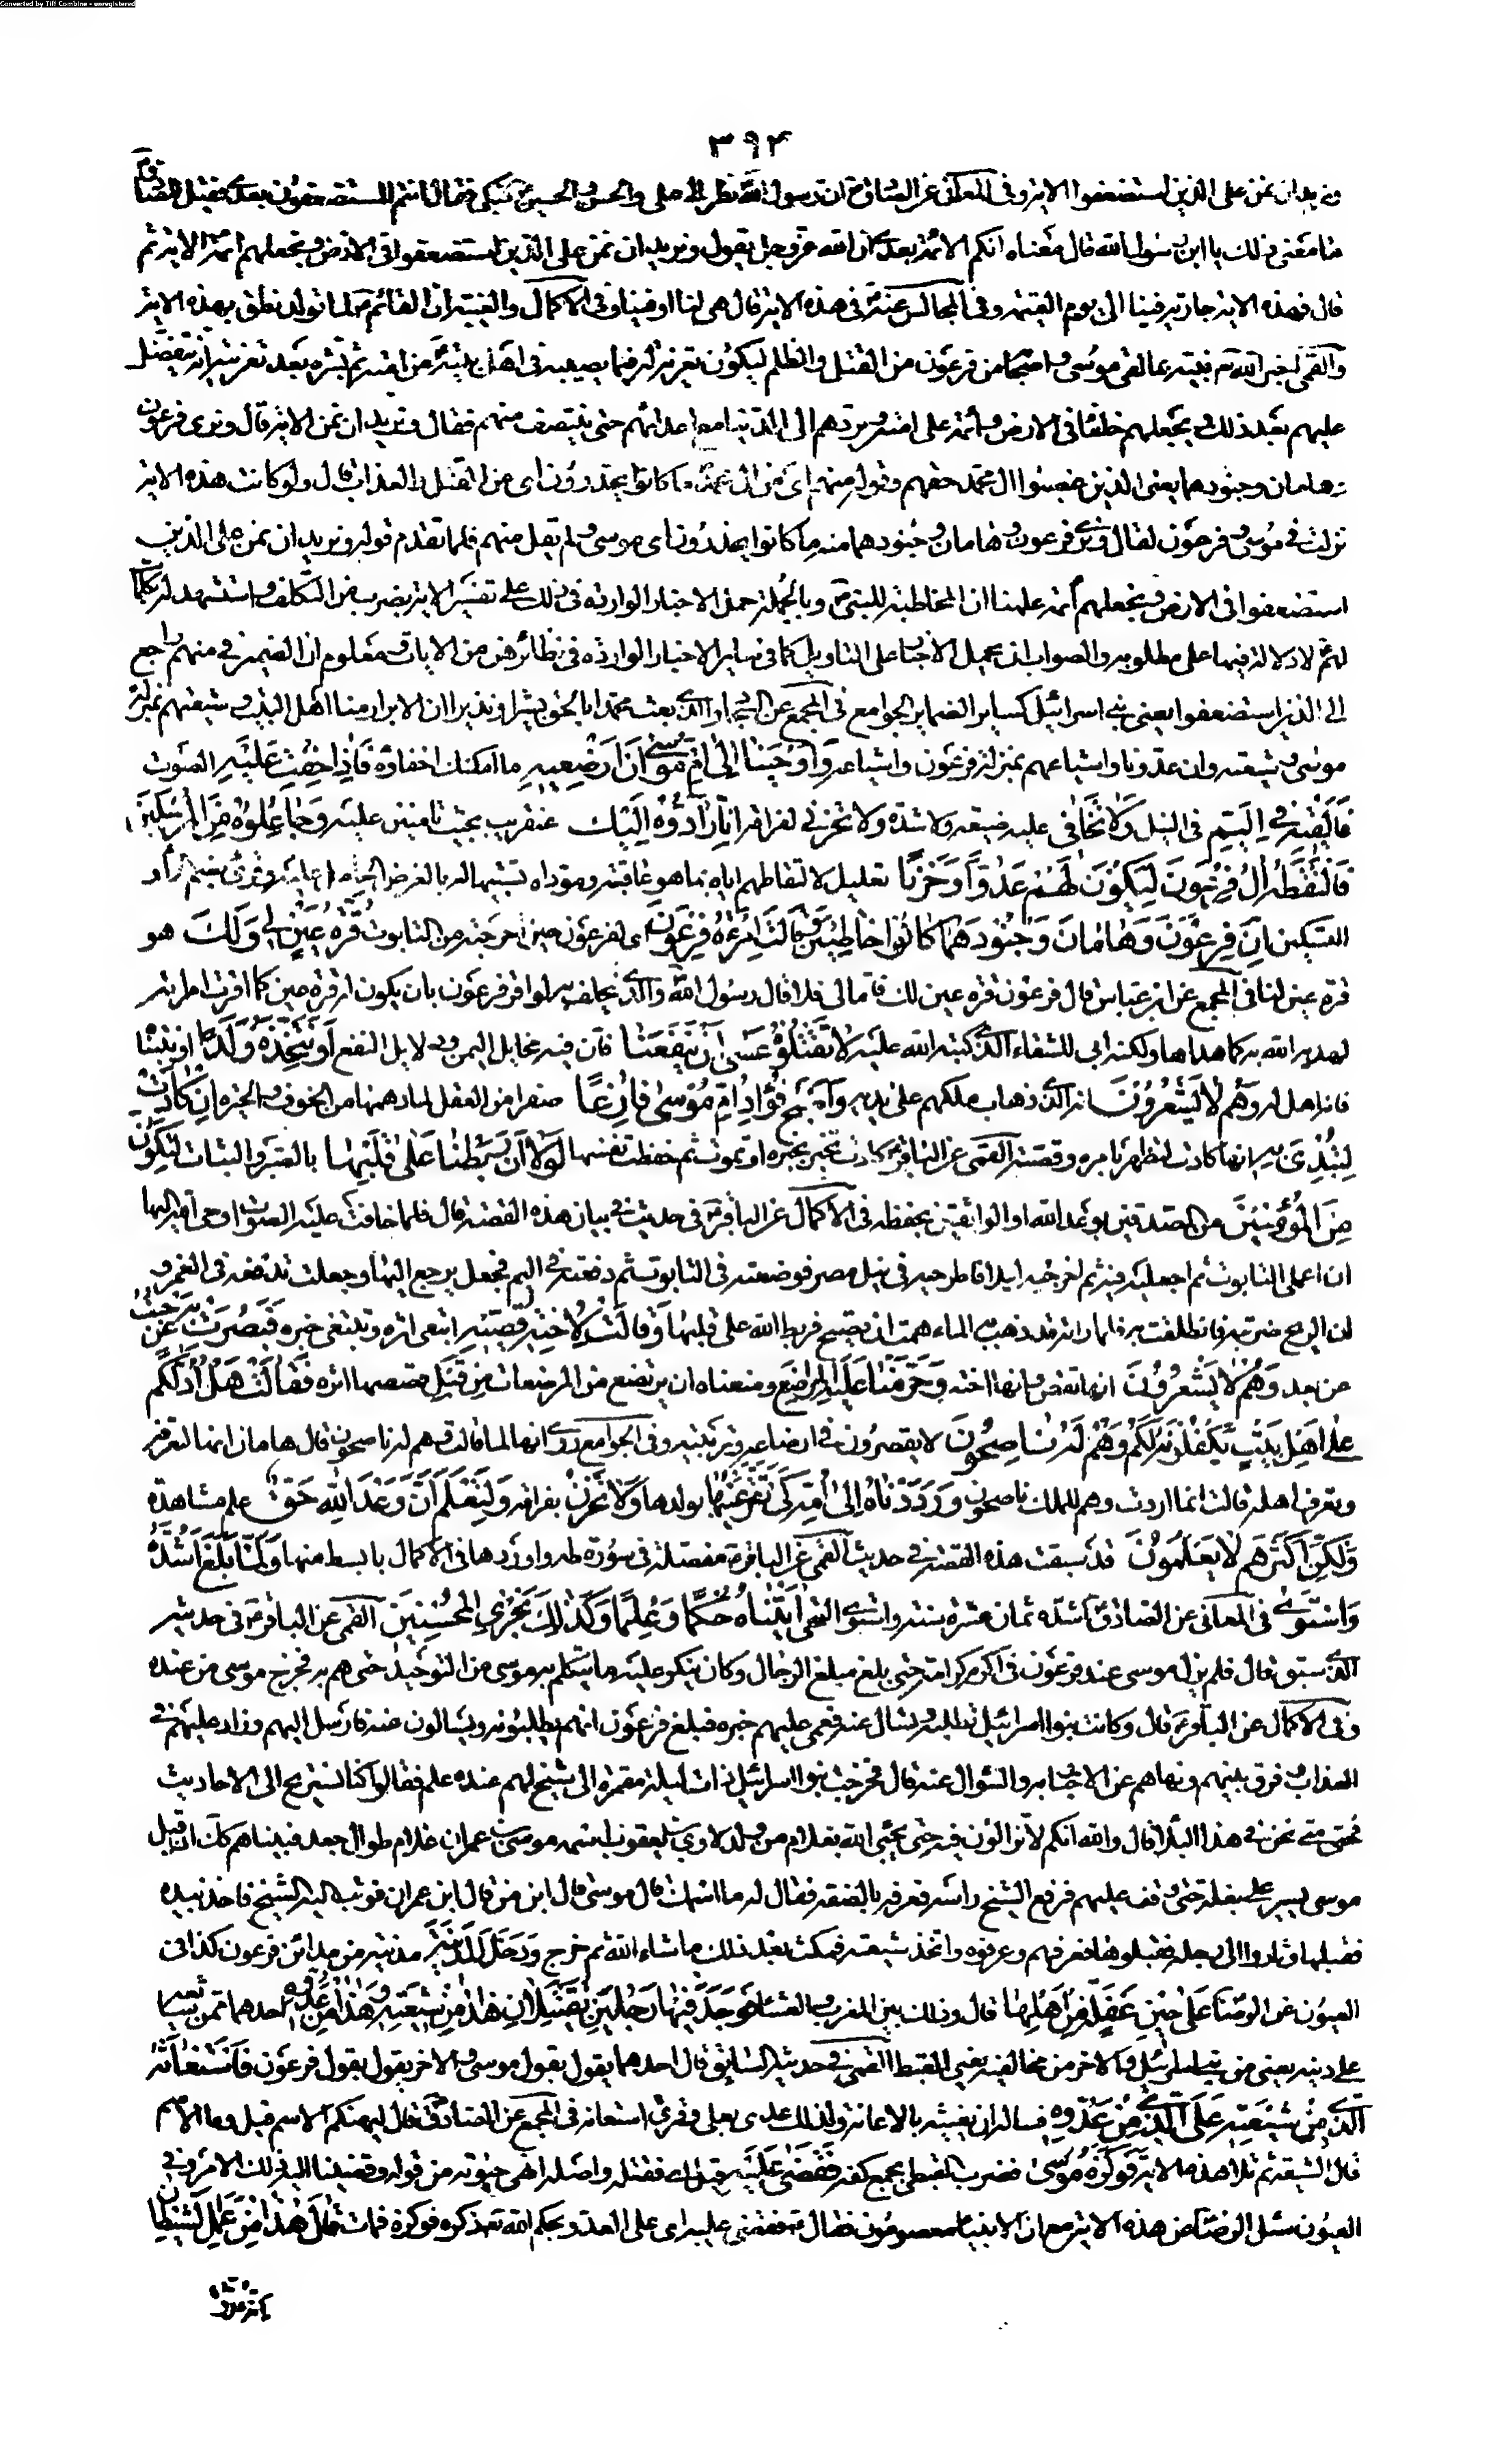 Converted by Tiff Combine - unregistered
٣٩٤
ونريد ان نمن على الذين استضعفوا الاية وفي المعاني عن الصادق ان رسول الله نظر الى على والحسن والحسين فبكى وقال انتم المستضعفون بعدي فقيل للصادق
ما معنى ذلك يا ابن رسول الله قال معناه انكم الائمة بعدي ان الله عز وجل يقول ونريد ان نمن على الذين استضعفوا في الارض ونجعلهم ائمة الاية ثم
قال فهذه الاية جارية فينا الى يوم القيمة وفي المجالس عنه في هذه الاية قال هي لنا او فينا وفي الاكمال والغيبة ان القائم لما تولد نطق بهذه الاية
والقمى اخبر الله نبيه بما لقى موسى واصحابه من فرعون من القتل والظلم ليكون تعزية له فيما يصيبه في اهل بيته من امته ثم بشره بعد تعزيته انه يتفضل
عليهم بعد ذلك ويجعلهم خلفا في الارض وائمة على امته ويردهم الى الدنيا مع اعدائهم حتى ينتصفوا منهم فقال ونريد ان نمن الاية قال ونرى فرعون
وهامان وجنودهما يعنى الذين غصبوا ال محمد حقهم وقوله منهم اي من ال محمد ما كانوا يحذرون اى من القتل والعذاب قال ولو كانت هذه الاية
نزلت في موسى وفرعون لقال ونرى فرعون وهامان وجنودهما منه ما كانوا يحذرون اى موسى ولم يقل منهم فلما تقدم قوله ونريد ان نمن على الذين
استضعفوا في الارض ونجعلهم ائمة علمنا ان المخاطبة للنبي وبالجملة حمل الاخبار الواردة في ذلك على تفسير الاية بضرب من التكلف واستشهد له بكلما
لهم لا دلالة فيها على مطلوبه والصواب ان يحمل الاخبار على التاويل كما في ساير الاخبار الواردة في نظائرهن من الايات ومعلوم ان الضمير في منهم راجع
الى الذين استضعفوا يعنى بني اسرائيل كساير الضماير الجوامع في المجمع عن السجاد والذي بعث محمدا بالحق بشيرا ونذيرا ان الابرار منا اهل البيت وشيعتهم بمنزلة
موسى وشيعته وان عدونا واشياعهم بمنزلة فرعون واشياعه وَاَوْحَيْنَا اِلىٰ اُمِّ مُوسىٰ اَنْ اَرْضِعِيهِ ما امكنك اخفاؤه فَاِذَا خِفْتِ عَلَيْهِ الصوت
فَاَلْقِيهِ فِي الْيَمِّ في النيل وَلَا تَخَافِي عليه ضيعة ولا شدة وَلَا تَحْزَنِي لفراقه اِنَّا رَادُّوهُ اِلَيْكِ عنقريب بحيث تامنين عليه وَجَاعِلُوهُ مِنَ الْمُرْسَلِينَ
فَالْتَقَطَهُ اٰلُ فِرْعَوْنَ لِيَكُونَ لَهُمْ عَدُوًّا وَحَزَنًا تعليل لالتقاطهم اياه بما هو عاقبته ومؤداه تشبيها له بالغرض الحامل عليه وقرئ بضم الحاء و
السكين اِنَّ فِرْعَوْنَ وَهَامَانَ وَجُنُودَهُمَا كَانُوا خَاطِئِينَ وَقَالَتِ امْرَاَةُ فِرْعَوْنَ اى لفرعون حين اخرجته من التابوت قُرَّةُ عَيْنٍ لِي وَلَكَ هو
قرة عين لنا في المجمع عن ابن عباس قال فرعون قرة عين لك فاما لى فلا قال رسول الله والذي يحلف به لو اقر فرعون بان يكون له قرة عين كما اقرت امراته
لهداه الله به كما هداها ولكنه ابى للشقاء الذي كتبه الله عليه لَا تَقْتُلُوهُ عَسىٰ اَنْ يَنْفَعَنَا فان فيه مخايل اليمن ودلايل النفع اَوْ نَتَّخِذَهُ وَلَدًا او نتبناه
فانه اهل له وَهُمْ لَا يَشْعُرُونَ انه الذي ذهاب ملكهم على يديه وَاَصْبَحَ فُؤَادُ اُمِّ مُوسىٰ فَارِغًا صفرا من العقل لما دهمها من الخوف والحيرة اِنْ كَادَتْ
لَتُبْدِي بِهِ انها كادت لتظهر بامره وقصته القمى عن الباقر كادت تخبر بخبره او تموت ثم حفظت نفسها لَوْلَا اَنْ رَبَطْنَا عَلىٰ قَلْبِهَا بالصبر والثبات لِتَكُونَ
مِنَ الْمُؤْمِنِينَ من المصدقين بوعد الله او الواثقين بحفظه في الاكمال عن الباقر في حديث في بيان هذه القصة قال فلما خافت عليه الصوت اوحى الله اليها
ان اعملى التابوت ثم اجعليه فيه ثم اخرجيه ليلا فاطرحيه في نيل مصر فوضعته في التابوت ثم دفعته في اليم فجعل يرجع اليها وجعلت تدفعه في الغمر و
ان الريح ضربته فانطلقت به فلما راته قد ذهب به الماء همت ان تصيح فربط الله على قلبها وَقَالَتْ لِاُخْتِهِ قُصِّيهِ اتبعى اثره وتتبعى خبره فَبَصُرَتْ بِهِ عَنْ جُنُبٍ
عن بعد وَهُمْ لَا يَشْعُرُونَ انها تقص وانها اخته وَحَرَّمْنَا عَلَيْهِ الْمَرَاضِعَ ومنعناه ان يرتضع من المرضعات مِنْ قَبْلُ قصصها اثره فَقَالَتْ هَلْ اَدُلُّكُمْ
عَلىٰ اَهْلِ بَيْتٍ يَكْفُلُونَهُ لَكُمْ وَهُمْ لَهُ نَاصِحُونَ لا يقصرون في ارضاعه وتربيته وفي الجوامع روى انها لما قالت وهم له ناصحون قال هامان انها لتعرفه
وتعرف اهله قالت انما اردت وهم للملك ناصحون وَرَدَدْنَاهُ اِلىٰ اُمِّهِ كَيْ تَقَرَّ عَيْنُهَا بولدها وَلَا تَحْزَنَ بفراقه وَلِتَعْلَمَ اَنَّ وَعْدَ اللهِ حَقٌّ علم مشاهدة
وَلٰكِنَّ اَكْثَرَهُمْ لَا يَعْلَمُونَ قد سبقت هذه القصة في حديث القمى عن الباقر مفصلة في سورة طه واوردها في الاكمال بابسط منها وَلَمَّا بَلَغَ اَشُدَّهُ
وَاسْتَوىٰ في المعانى عن الصادق اشده ثمان عشرة سنة واستوى التحى اٰتَيْنَاهُ حُكْمًا وَعِلْمًا وَكَذٰلِكَ نَجْزِي الْمُحْسِنِينَ القمى عن الباقر في حديثه
الذي سبق قال فلم يزل موسى عند فرعون في اكرم كرامة حتى بلغ مبلغ الرجال وكان ينكر عليه ما يتكلم به موسى من التوحيد حتى هم به فخرج موسى من عنده
وفى الاكمال عن الباقر قال وكانت بنوا اسرائيل تطلبه وتسال عنه فعمى عليهم خبره فبلغ فرعون انهم يطلبونه ويسالون عنه فارسل اليهم وزاد عليهم في
العذاب وفرق بينهم ونهاهم عن الاخبار به والسؤال عنه قال فخرجت بنوا اسرائيل ذات ليلة مقمرة الى شيخ لهم عنده علم فقالوا كنا نستريح الى الاحاديث
فحتى متى نحن في هذا البلاء قال والله انكم لا تزالون فيه حتى يجئ الله بغلام من ولد لاوى بن يعقوب اسمه موسى بن عمران غلام طوال جعد فبيناهم كذلك اذ اقبل
موسى يسير على بغلة حتى وقف عليهم فرفع الشيخ راسه فعرفه بالصفة فقال له ما اسمك قال موسى قال ابن من قال ابن عمران فوثب اليه الشيخ فاخذ بيده
فقبلها وثاروا الى رجله فقبلوها فعرفهم وعرفوه واتخذ شيعته فمكث بعد ذلك ما شاء الله ثم خرج وَدَخَلَ الْمَدِينَةَ مدينة من مداين فرعون كذا في
العيون عن الرضا عَلىٰ حِينِ غَفْلَةٍ مِنْ اَهْلِهَا قال وذلك بين المغرب والعشاء فَوَجَدَ فِيهَا رَجُلَيْنِ يَقْتَتِلَانِ هٰذَا مِنْ شِيعَتِهِ وَهٰذَا مِنْ عَدُوِّهِ احدهما ممن شايعه
على دينه يعنى من بنى اسرائيل والاخر من مخالفيه يعنى القبط القمى في حديثه السابق قال احدهما يقول بقول موسى والاخر يقول بقول فرعون فَاسْتَغَاثَهُ
الَّذِي مِنْ شِيعَتِهِ عَلَى الَّذِي مِنْ عَدُوِّهِ فساله ان يغيثه بالاعانة ولذلك عدى بعلى وقرئ استعانه في المجمع عن الصادق قال ليهنكم الاسم قيل وما الاسم
قال الشيعة ثم تلا هذه الاية فَوَكَزَهُ مُوسىٰ فضرب القبطى بجمع كفه فَقَضىٰ عَلَيْهِ قيل اى فقتله واصله انهى حيوته من قوله وقضينا اليه ذلك الامر وفي
العيون سئل الرضا عن هذه الاية مع ان الانبياء معصومون فقال فقضى عليه اى على العدو بحكم الله تعالى ذكره فوكزه فمات قَالَ هٰذَا مِنْ عَمَلِ الشَّيْطَانِ
انه عدو